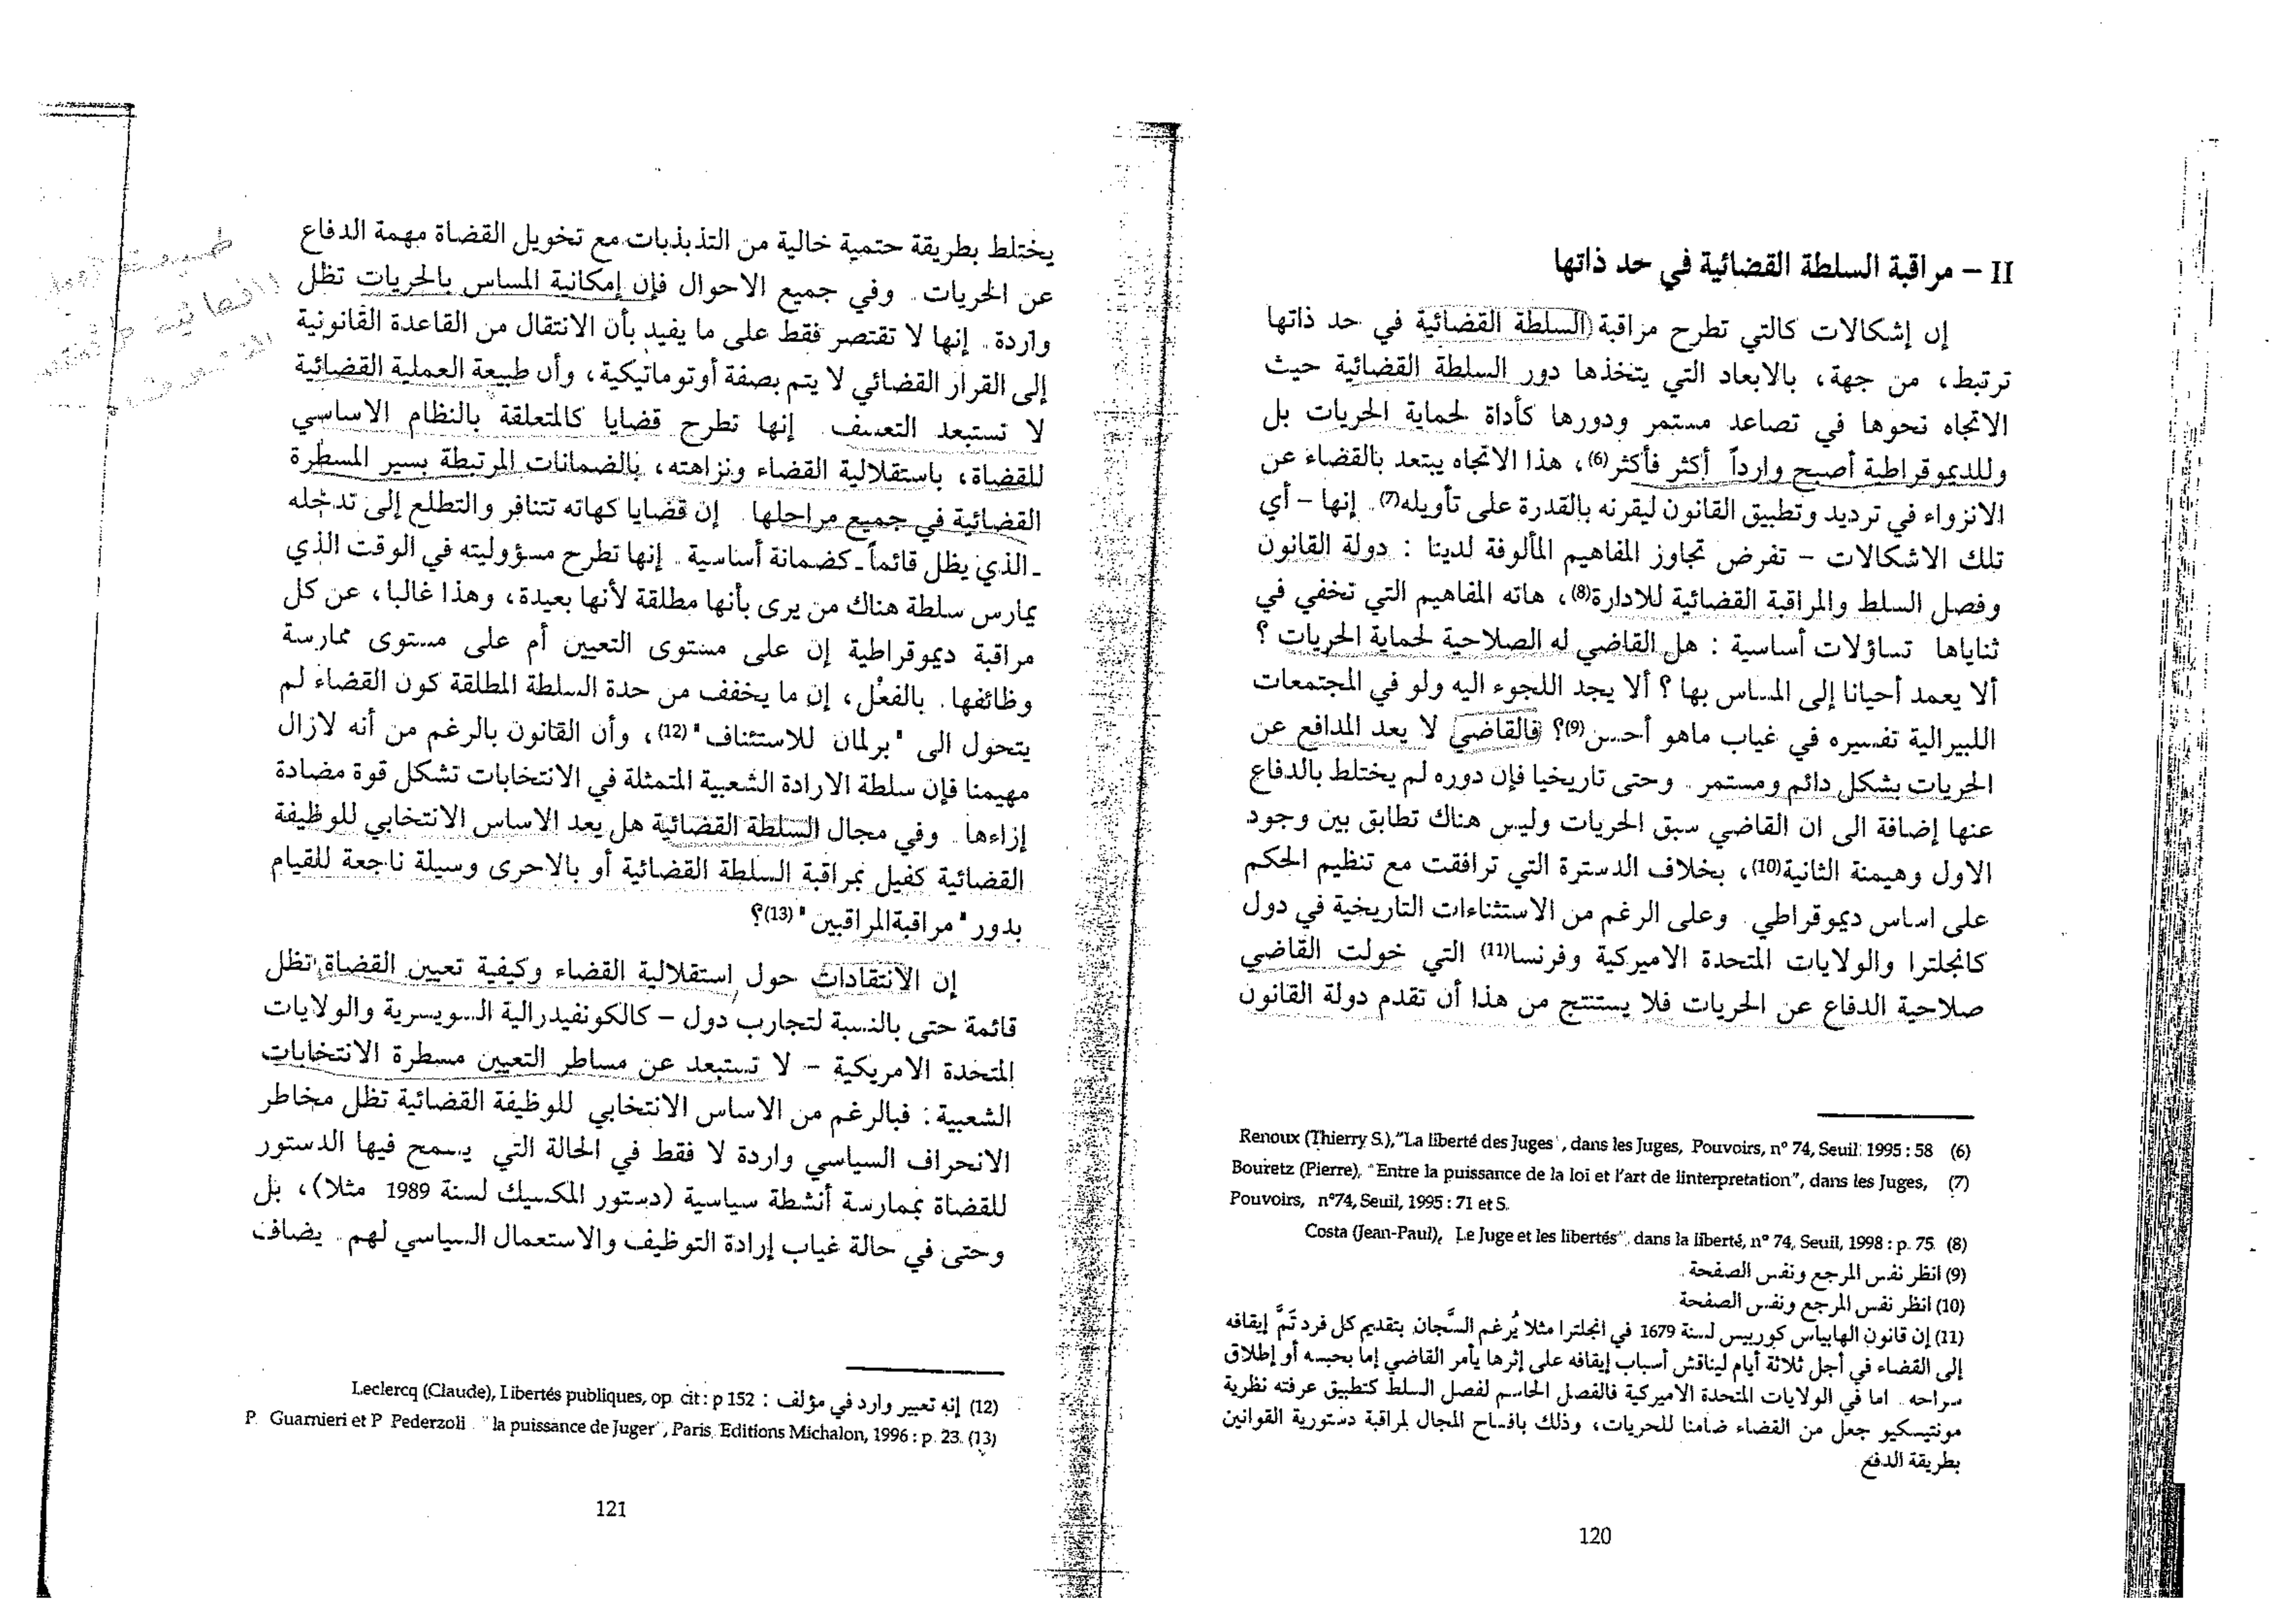 II – مراقبة السلطة القضائية في حد ذاتها
إن إشكالات كالتي تطرح مراقبة السلطة القضائية في حد ذاتها
ترتبط، من جهة، بالابعاد التي يتخذها دور السلطة القضائية حيث
الاتجاه نحوها في تصاعد مستمر ودورها كأداة لحماية الحريات بل
وللديموقراطية أصبح وارداً أكثر فأكثر(6)، هذا الاتجاه يبتعد بالقضاء عن
الانزواء في ترديد وتطبيق القانون ليقرنه بالقدرة على تأويله(7). إنها – أي
تلك الاشكالات – تفرض تجاوز المفاهيم المألوفة لدينا : دولة القانون
وفصل السلط والمراقبة القضائية للادارة(8)، هاته المفاهيم التي تخفي في
ثناياها تساؤلات أساسية : هل القاضي له الصلاحية لحماية الحريات ؟
ألا يعمد أحيانا إلى المساس بها ؟ ألا يجد اللجوء اليه ولو في المجتمعات
الليبرالية تفسيره في غياب ماهو أحسن(9)؟ فالقاضي لا يعد المدافع عن
الحريات بشكل دائم ومستمر. وحتى تاريخيا فإن دوره لم يختلط بالدفاع
عنها إضافة الى ان القاضي سبق الحريات وليس هناك تطابق بين وجود
الاول وهيمنة الثانية(10)، بخلاف الدسترة التي ترافقت مع تنظيم الحكم
على اساس ديموقراطي. وعلى الرغم من الاستثناءات التاريخية في دول
كانجلترا والولايات المتحدة الاميركية وفرنسا(11) التي خولت القاضي
صلاحية الدفاع عن الحريات فلا يستنتج من هذا أن تقدم دولة القانون
Renoux (Thierry S.),"La liberté des Juges", dans les Juges, Pouvoirs, n° 74, Seuil. 1995 : 58 (6)
Bouretz (Pierre), "Entre la puissance de la loi et l'art de linterpretation", dans les Juges, (7)
Pouvoirs, n°74, Seuil, 1995 : 71 et S.
Costa (Jean-Paul), Le Juge et les libertés", dans la liberté, n° 74, Seuil, 1998 : p. 75. (8)
(9) انظر نفس المرجع ونفس الصفحة.
(10) انظر نفس المرجع ونفس الصفحة
(11) إن قانون الهابياس كوربيس لسنة 1679 في انجلترا مثلا يُرغم السَّجان بتقديم كل فرد تَمَّ إيقافه
إلى القضاء في أجل ثلاثة أيام ليناقش أسباب إيقافه على إثرها يأمر القاضي إما بحبسه أو إطلاق
سراحه. اما في الولايات المتحدة الاميركية فالفصل الحاسم لفصل السلط كتطبيق عرفته نظرية
مونتيسكيو جعل من القضاء ضامنا للحريات، وذلك بافساح المجال لمراقبة دستورية القوانين
بطريقة الدفع
120
يختلط بطريقة حتمية خالية من التذبذبات مع تخويل القضاة مهمة الدفاع
عن الحريات. وفي جميع الاحوال فإن إمكانية المساس بالحريات تظل
واردة. إنها لا تقتصر فقط على ما يفيد بأن الانتقال من القاعدة القانونية
إلى القرار القضائي لا يتم بصفة أوتوماتيكية، وأن طبيعة العملية القضائية
لا تستبعد التعسف. إنها تطرح قضايا كالمتعلقة بالنظام الاساسي
للقضاة، باستقلالية القضاء ونزاهته، بالضمانات المرتبطة بسير المسطرة
القضائية في جميع مراحلها. إن قضايا كهاته تتنافر والتطلع إلى تدخله
ـ الذي يظل قائماً ـ كضمانة أساسية. إنها تطرح مسؤوليته في الوقت الذي
يمارس سلطة هناك من يرى بأنها مطلقة لأنها بعيدة، وهذا غالبا، عن كل
مراقبة ديموقراطية إن على مستوى التعيين أم على مستوى ممارسة
وظائفها. بالفعل، إن ما يخفف من حدة السلطة المطلقة كون القضاء لم
يتحول الى "برلمان للاستئناف" (12)، وأن القانون بالرغم من أنه لازال
مهيمنا فإن سلطة الارادة الشعبية المتمثلة في الانتخابات تشكل قوة مضادة
إزاءها. وفي مجال السلطة القضائية هل يعد الاساس الانتخابي للوظيفة
القضائية كفيل بمراقبة السلطة القضائية أو بالاحرى وسيلة ناجعة للقيام
بدور "مراقبةالمراقبين" (13)؟
إن الانتقادات حول استقلالية القضاء وكيفية تعيين القضاة تظل
قائمة حتى بالنسبة لتجارب دول – كالكونفيدرالية السويسرية والولايات
المتحدة الامريكية – لا تستبعد عن مساطر التعيين مسطرة الانتخابات
الشعبية : فبالرغم من الاساس الانتخابي للوظيفة القضائية تظل مخاطر
الانحراف السياسي واردة لا فقط في الحالة التي يسمح فيها الدستور
للقضاة بممارسة أنشطة سياسية (دستور المكسيك لسنة 1989 مثلا)، بل
وحتى في حالة غياب إرادة التوظيف والاستعمال السياسي لهم. يضاف
(12) إنه تعبير وارد في مؤلف : Leclercq (Claude), Libertés publiques, op. cit : p 152
P. Guarnieri et P. Pederzoli. "la puissance de Juger", Paris, Editions Michalon, 1996 : p. 23. (13)
121
طبيعة
القضائية